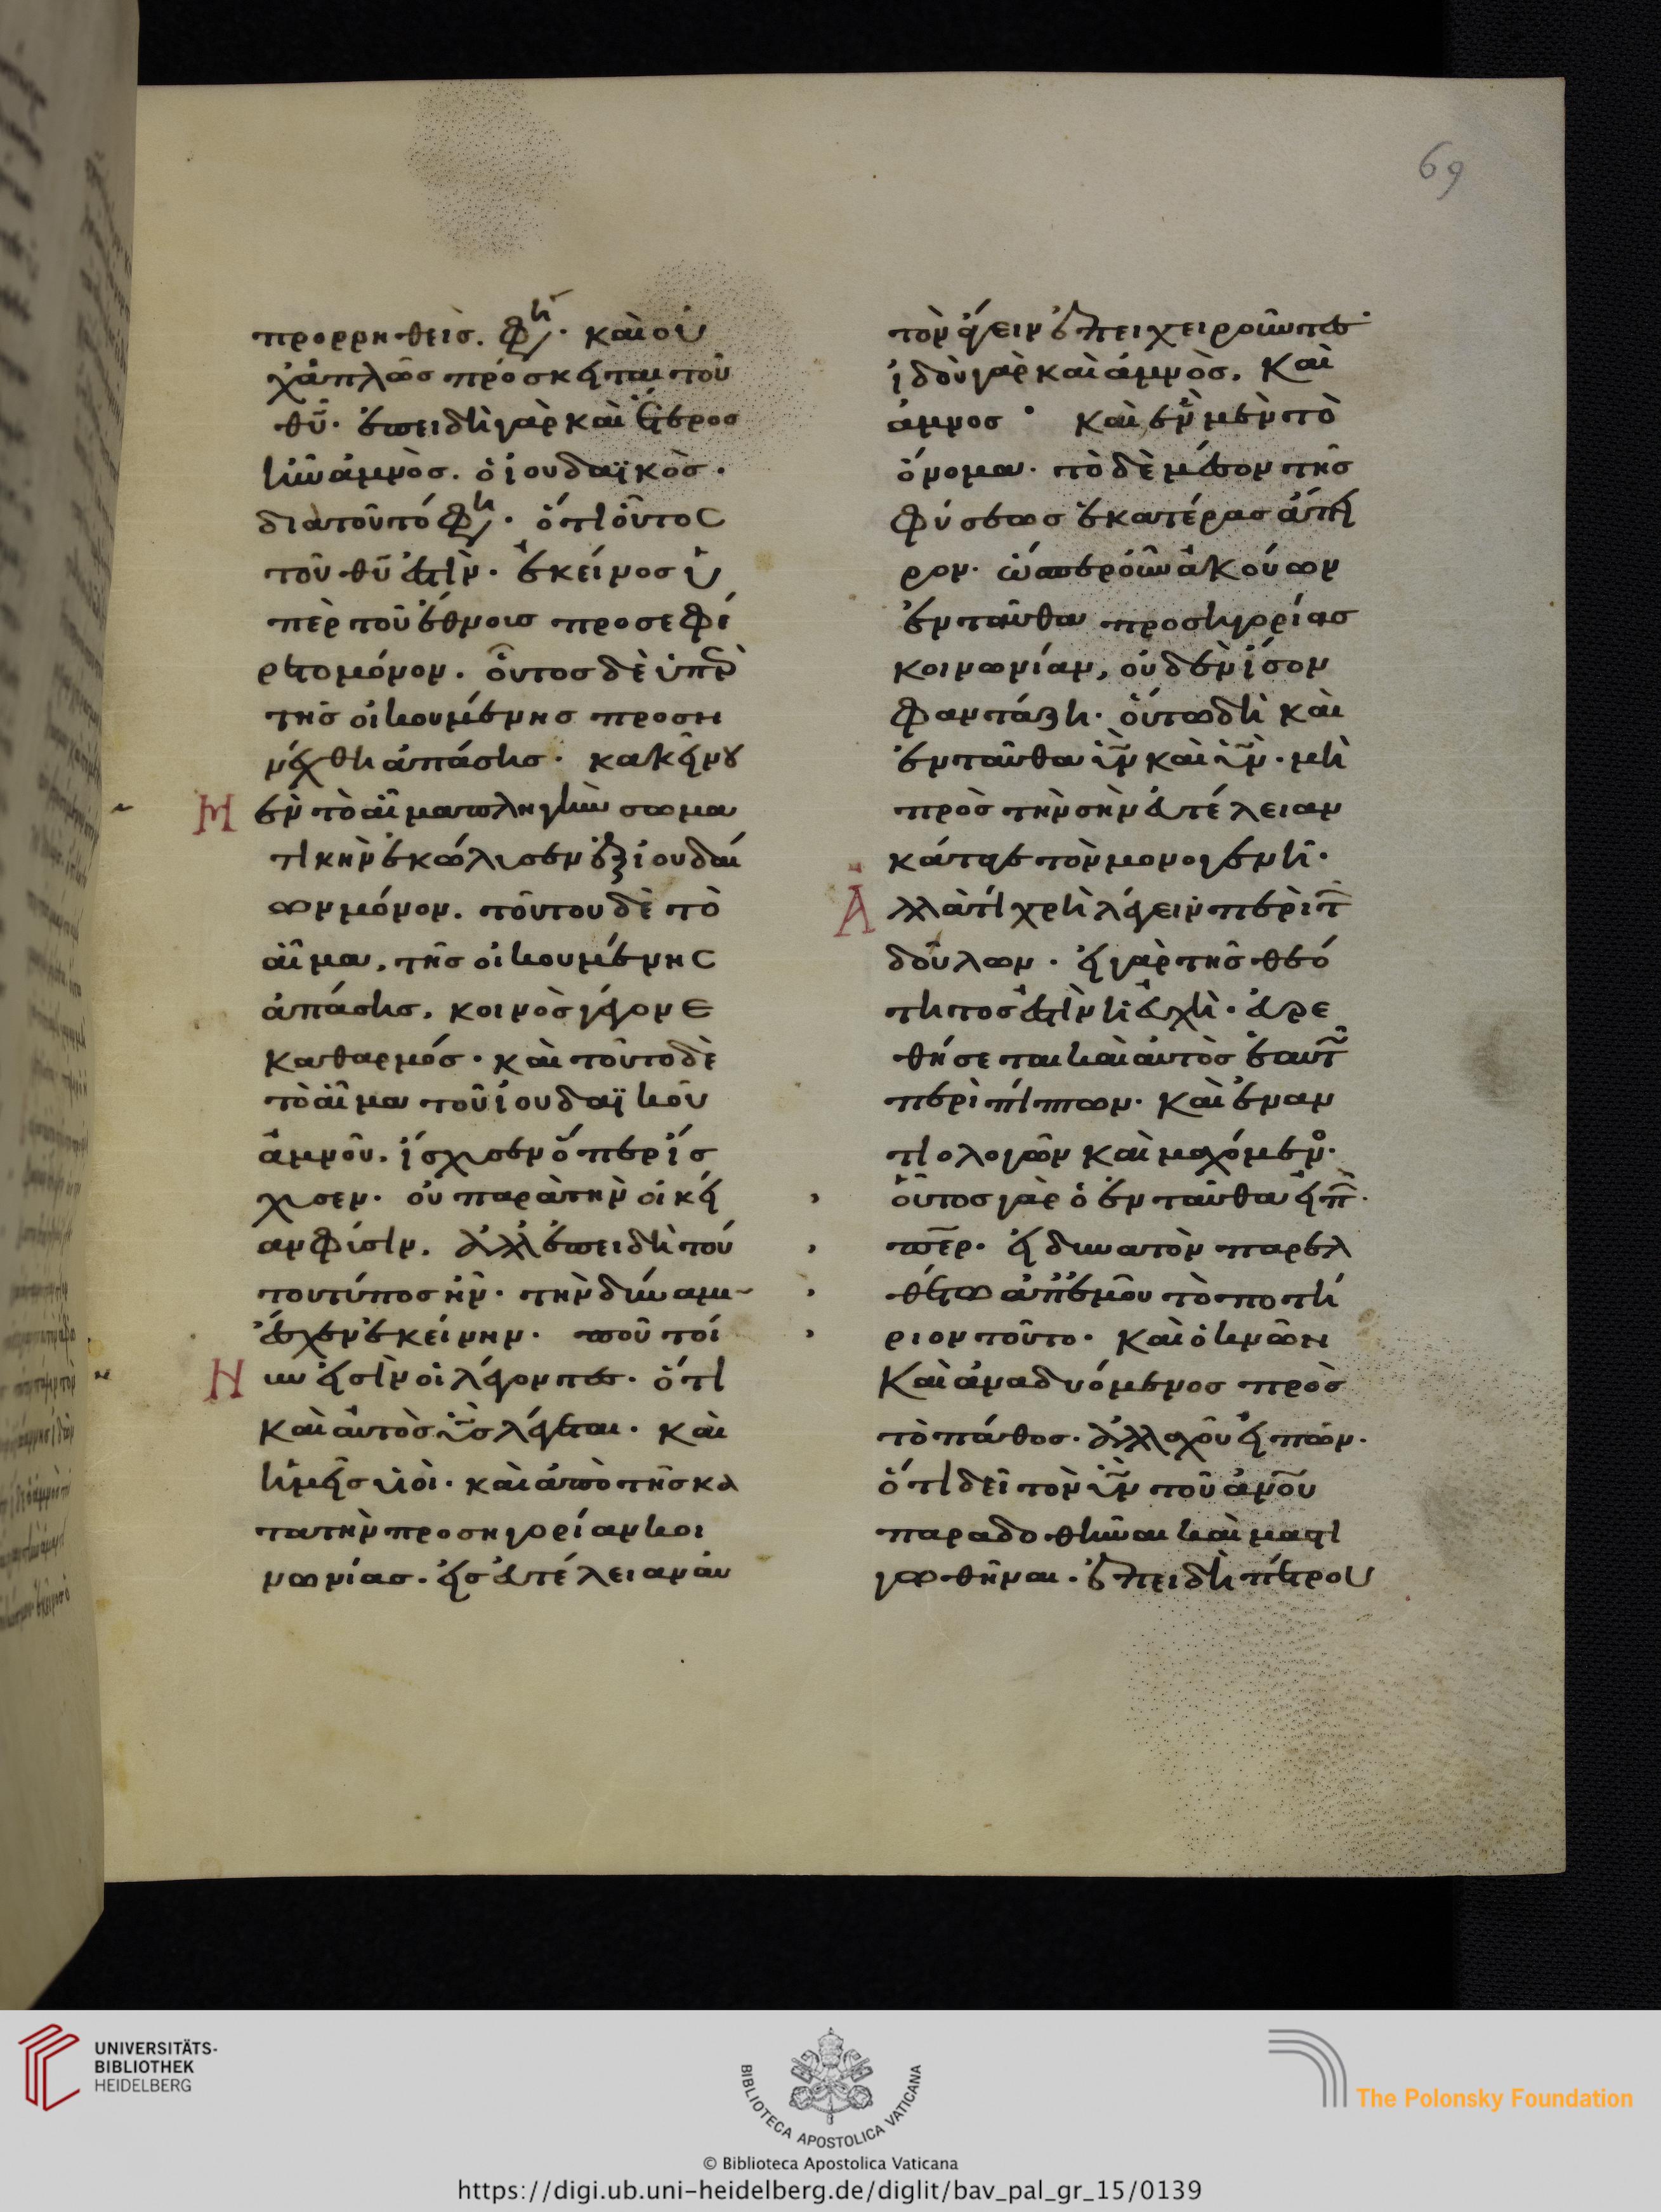 69
προρρηθεὶσ. φη· καὶ οὐ
χ ἁπλῶσ πρόσκειται τοῦ
θῦ· ἐπειδὴ γὰρ καὶ ἕτεροσ
ἦν ἀμνὸσ. ὁ ἰουδαϊκὸσ·
διατοῦτό φη· ὅτι οὗτοσ
τοῦ θῦ ἐστὶν· ἐκεῖνοσ ὑ
πὲρ τοῦ ἔθνουσ προσεφέ
ρετο μόνον. οὗτοσ δὲ ὑπὲρ
τῆσ οἰκουμένησ προση
νέχθη ἁπάσησ· κακείνου
μὲν τὸ αἷμα πληγὴν σωμα
τικὴν ἐκώλυσεν ἐξ ἰουδαί
ων μόνον. τούτου δὲ τὸ
αἷμα, τῆσ οἰκουμένησ
ἁπάσησ, κοινὸσ γέγονε
καθαρμόσ· καὶ τοῦτο δὲ
τὸ αἷμα τοῦ ἰουδαϊκοῦ
ἀμνοῦ. ἴσχυσεν ὅπερ ἴσ
χυσεν· οὐ παρὰ τὴν οἰκεί
αν φύσιν. ἀλλ' ἐπειδὴ τού
του τύποσ ἦν· τὴν δύναμιν
ἔσχεν ἐκείνην· ποῦ τοί
νυν εἰσὶν οἱ λέγοντεσ· ὅτι
καὶ αὐτὸσ υἱσ λέγεται· καὶ
ἡμεῖσ υἱοὶ· καὶ ἀπὸ τῆσ κα
τα τὴν προσηγορίαν κοι
νωνίασ· εἰσ εὐτέλειαν αὐ
τὸν ἄγειν ἐπιχειροῦντεσ·
ἰδοὺ γὰρ καὶ ἀμνὸσ. καὶ
ἀμνοσ· καὶ ἓν μὲν τὸ
ὄνομα· τὸ δὲ μέσον τῆσ
φύσεωσ ἑκατέρασ ἄπει
ρον· ὥσπερ οὖν ἀκούων
ἐνταῦθα προσηγορίασ
κοινωνίαν, οὐδὲν ἴσον
φαντάζη· οὕτω δὴ καὶ
ἐνταῦθα υἱν καὶ υἱν· μὴ
πρὸσ τὴν σὴν εὐτέλειαν
κάταγε τὸν μονογενῆ·
ἀλλὰ τί χρὴ λέγειν περὶ τ
δούλων· εἰ γὰρ τῆσ θεό
τητοσ ἐστὶν ἡ εὐχὴ· εὑρε
θήσεται καὶ αὐτὸσ ἑαυτ
περὶ πίπτων· καὶ ἐναν
τιολογῶν καὶ μαχόμενο·
οὗτοσ γὰρ ὁ ἐνταῦθα εἰπ·
περ· εἰ δυνατὸν παρελ
θέτω ἀπ' ἐμοῦ τὸ ποτή
ριον τοῦτο· καὶ ὀκνῶν
καὶ ἀναδυόμενοσ πρὸσ
τὸ πάθοσ· ἀλλαχοῦ εἰπὼν·
ὅτι δεῖ τὸν υἱν τοῦ ἀνου
παραδοθῆναι καὶ μαστι
γωθῆναι· ἐπειδὴ πέτρου
UNIVERSITÄTS-
BIBLIOTHEK
HEIDELBERG
BIBLIOTECA APOSTOLICA VATICANA
The Polonsky Foundation
© Biblioteca Apostolica Vaticana
https://digi.ub.uni-heidelberg.de/diglit/bav_pal_gr_15/0139